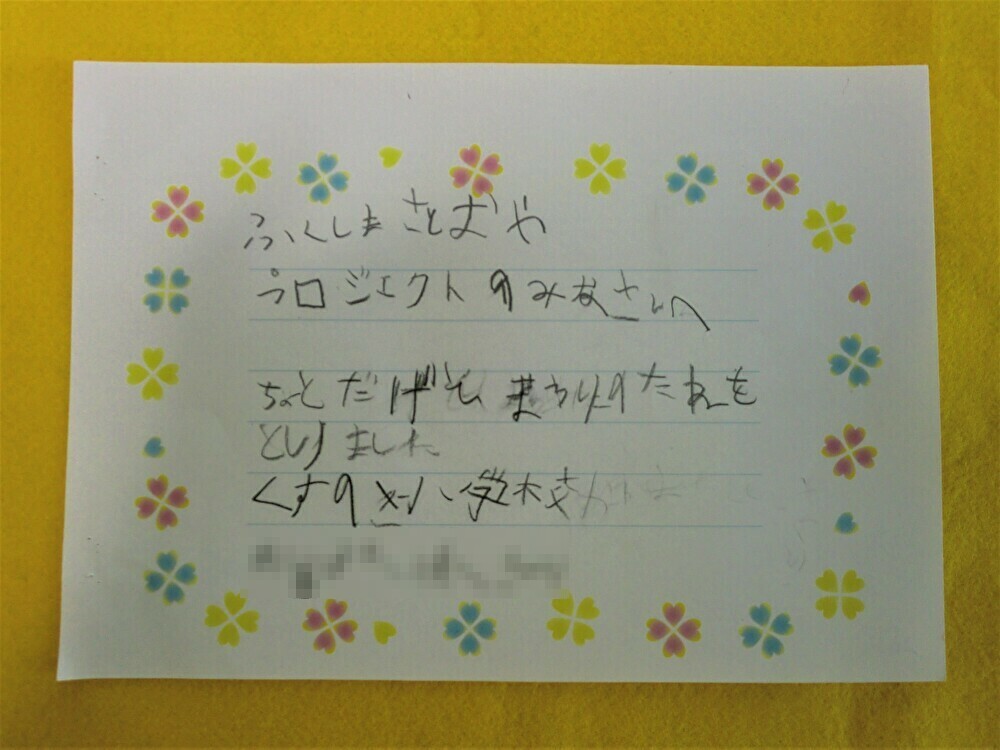 ふくしまさとおや
プロジェクトのみなさんへ
ちょとだけ ひまわりのたねを
とりました
くすのき小